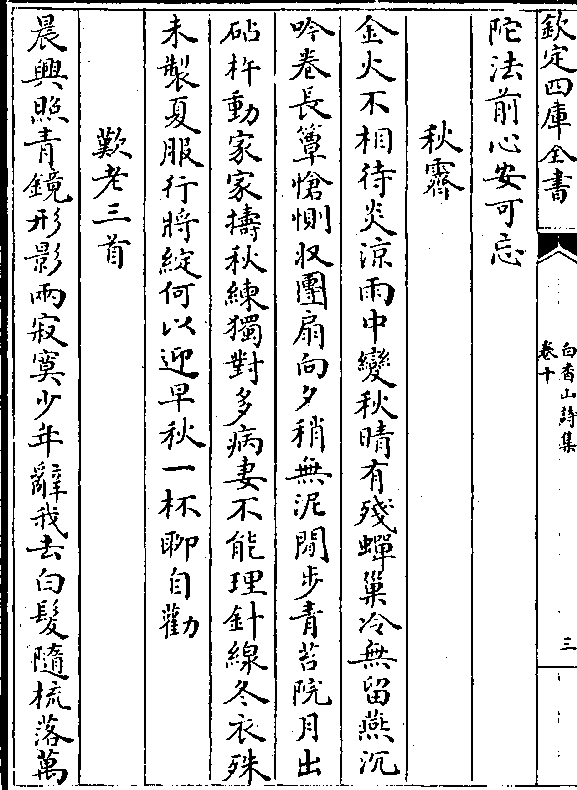 欽定四庫全書
白香山詩集
卷十
三
陀法前心安可忘
秋霽
金火不相待炎涼雨中變秋晴有殘蟬巢冷無留燕沉
吟卷長簟愴惻収團扇向夕稍無泥閒步青苔院月出
砧杵動家家擣秋練獨對多病妻不能理針線冬衣殊
未製夏服行將綻何以迎早秋一杯聊自勸
歎老三首
晨興照青鏡形影兩寂寞少年辭我去白髮隨梳落萬